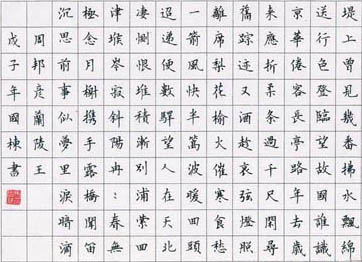 堤上曾見幾番拂水飄綿
送行色登臨望故國誰識
京華倦客長亭路年去歲
來應折柔條過千尺閒尋
舊蹤跡又酒趁哀弦燈照
離席梨花榆火催寒食愁
一箭風快半篙波暖回頭
迢遞便數驛望人在天北
淒惻恨堆積漸別浦縈回
津堠岑寂斜陽冉冉春無
極念月榭攜手露橋聞笛
沉思前事似夢裏淚暗滴
周邦彥蘭陵王
戊子年國棟書